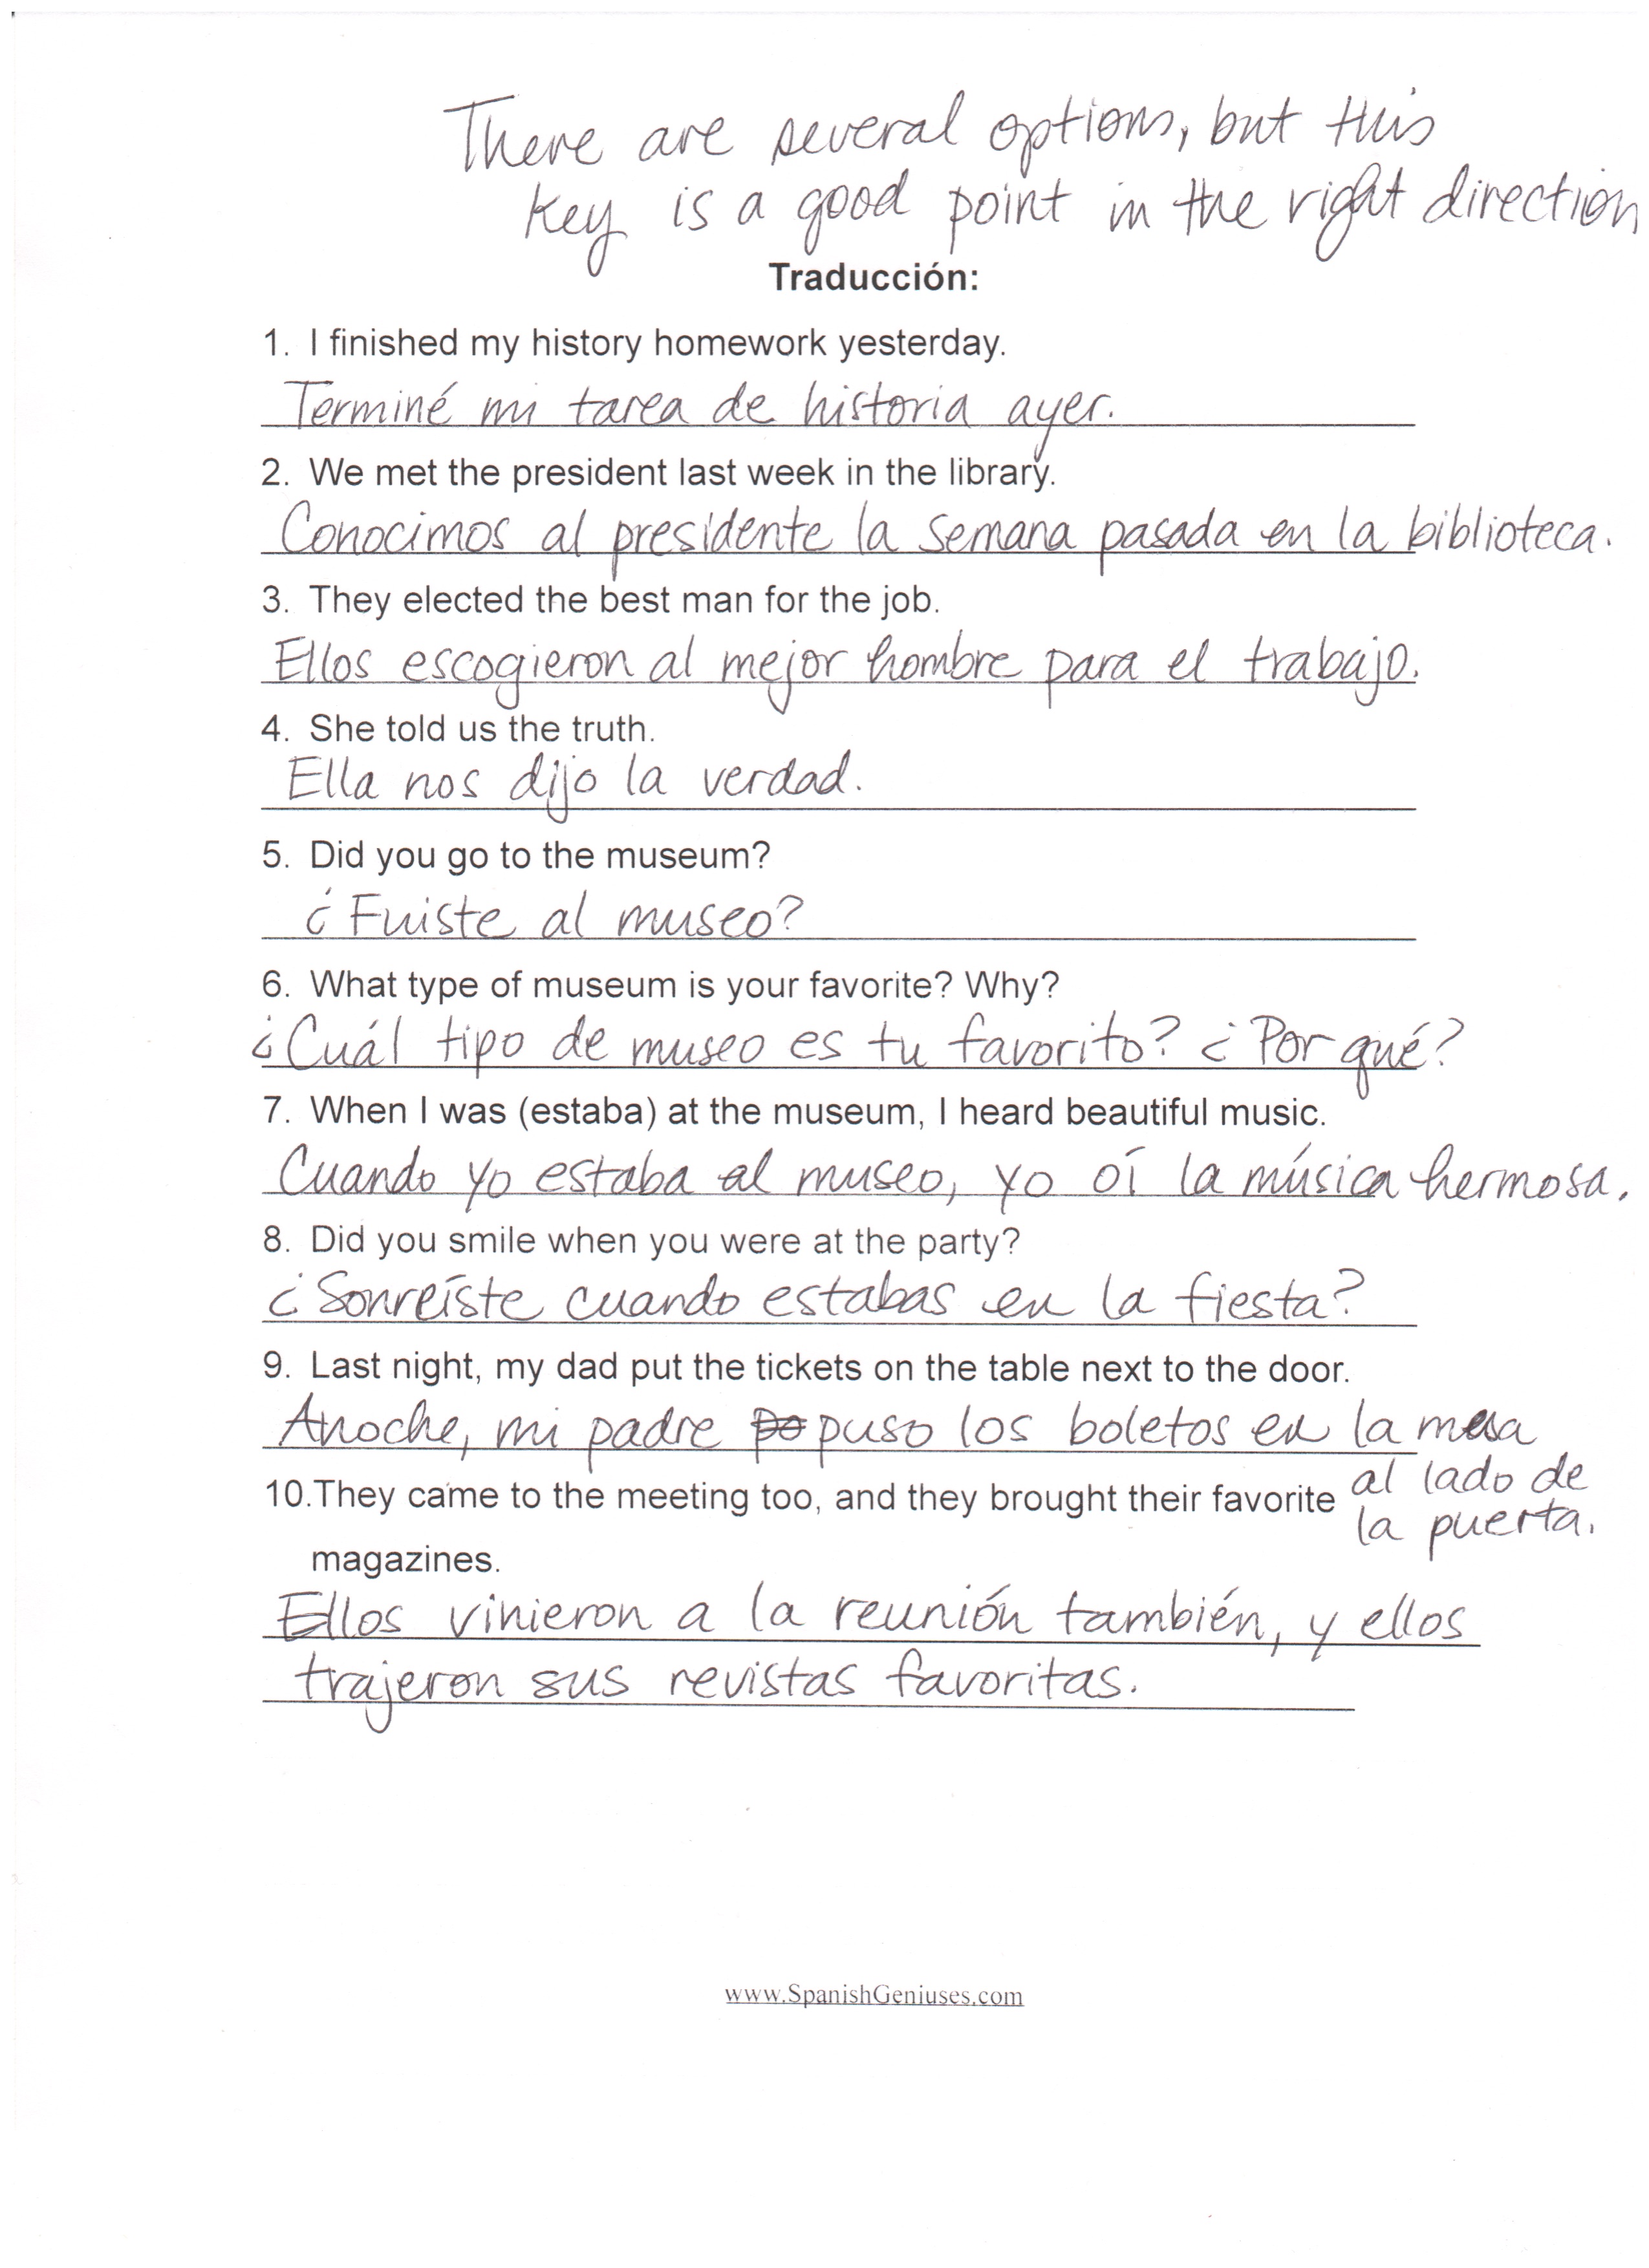 There are several options, but this
key is a good point in the right direction
Traducción:
1. I finished my history homework yesterday.
Terminé mi tarea de historia ayer.
2. We met the president last week in the library.
Conocimos al presidente la semana pasada en la biblioteca.
3. They elected the best man for the job.
Ellos escogieron al mejor hombre para el trabajo.
4. She told us the truth.
Ella nos dijo la verdad.
5. Did you go to the museum?
¿Fuiste al museo?
6. What type of museum is your favorite? Why?
¿Cuál tipo de museo es tu favorito? ¿Por qué?
7. When I was (estaba) at the museum, I heard beautiful music.
Cuando yo estaba al museo, yo oí la música hermosa.
8. Did you smile when you were at the party?
¿Sonreíste cuando estabas en la fiesta?
9. Last night, my dad put the tickets on the table next to the door.
Anoche, mi padre po puso los boletos en la mesa
al lado de
la puerta.
10.They came to the meeting too, and they brought their favorite
magazines.
Ellos vinieron a la reunión también, y ellos
trajeron sus revistas favoritas.
www.SpanishGeniuses.com